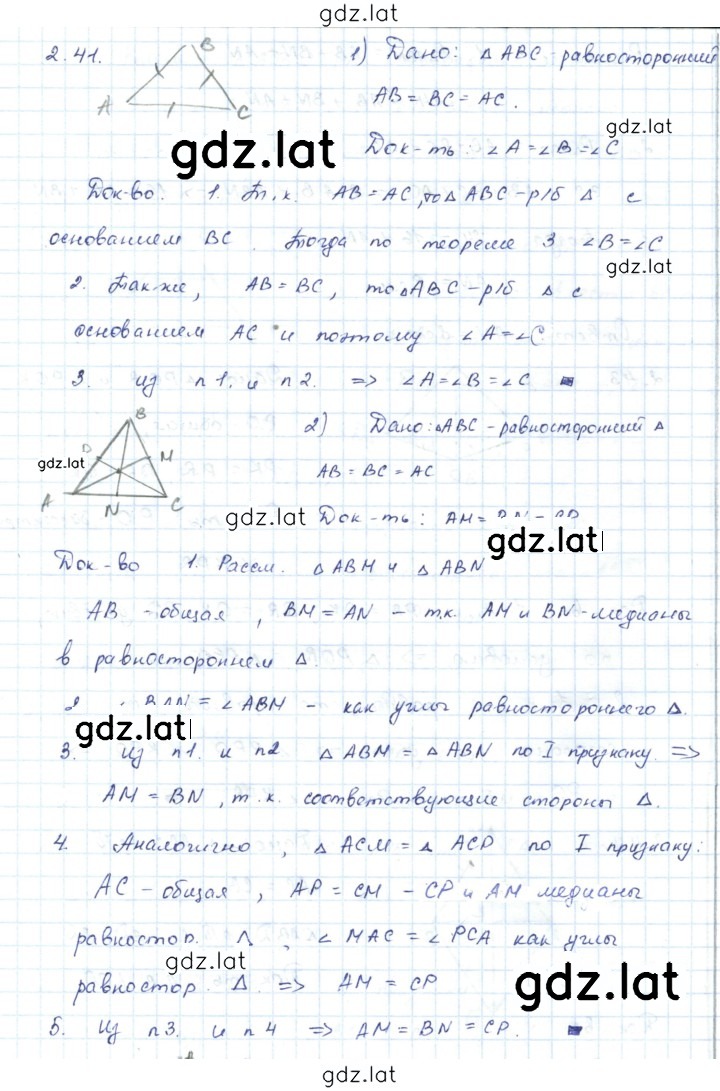 gdz.lat
2.41.
B
A
C
1) Дано: △ ABC - равносторонний
AB = BC = AC.
gdz.lat
Док-ть: ∠A = ∠B = ∠C
Док-во: 1. Т.к. AB = AC, то △ ABC - р/б △ с
основанием BC. Тогда по теореме 3 ∠B = ∠C
gdz.lat
2. Так-же, AB = BC, то △ABC - р/б △ с
основанием AC и поэтому ∠A = ∠C.
3. Из п 1. и п 2. => ∠A = ∠B = ∠C
B
D
M
A
N
C
gdz.lat
2) Дано: △ABC - равносторонний △
AB = BC = AC
gdz.lat
Док-ть: AM =
gdz.lat
Док-во 1. Рассм. △ ABM и △ ABN
AB - общая, BM = AN - т.к. AM и BN - медианы
в равностороннем △.
= ∠ABM - как углы равностороннего △.
gdz.lat
3. Из п1. и п2 △ ABM = △ ABN по I признаку =>
AM = BN, т.к. соответствующие стороны △.
4. Аналогично, △ ACM = △ ACP по I признаку:
AC - общая, AP = CM - CP и AM медианы
равностор. △, ∠ MAC = ∠ PCA как углы
gdz.lat
равностор. △. => AM = CP
gdz.lat
5. Из п3. и п 4 => AM = BN = CP.
gdz.lat